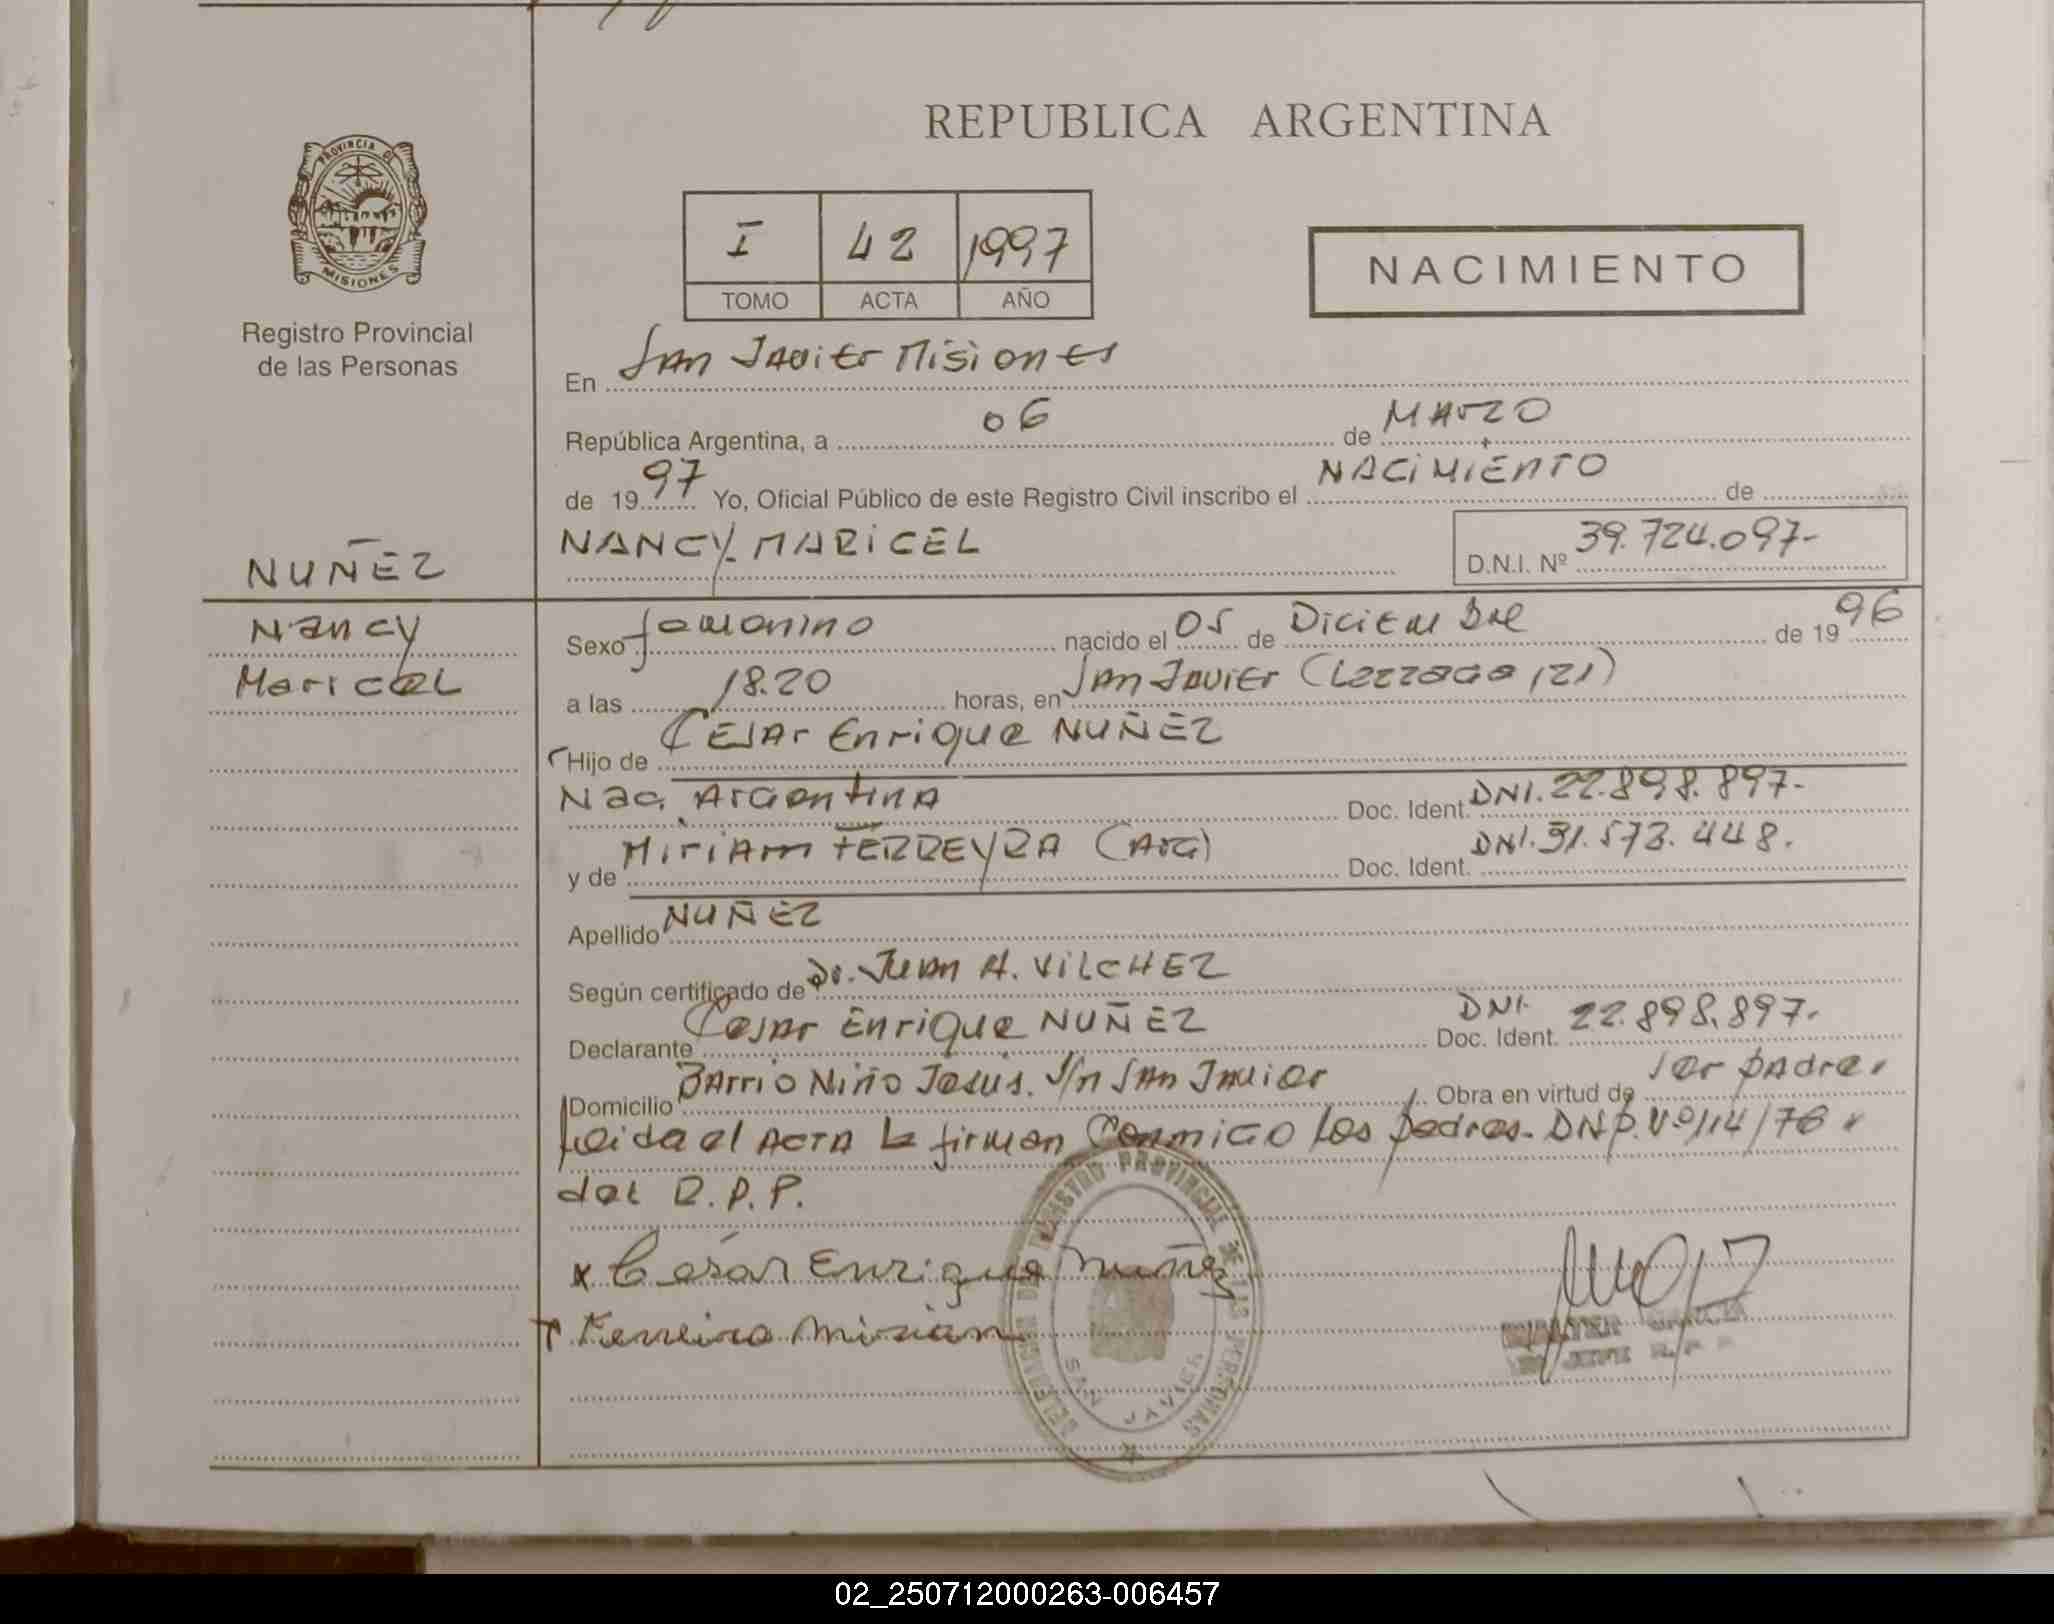 REPUBLICA ARGENTINA
PROVINCIA DE
MISIONES
Registro Provincial
de las Personas
I 42 1997
TOMO ACTA AÑO
NACIMIENTO
En San Javier Misiones
República Argentina, a 06 de Marzo
de 1997 Yo, Oficial Público de este Registro Civil inscribo el NACIMIENTO de
NANCY MARICEL D.N.I. Nº 39.724.097-
NUÑEZ
Nancy
Maricel
Sexo femenino nacido el 05 de Diciembre de 1996
a las 18.20 horas, en San Javier (Lezzaga 121)
Hijo de Cesar Enrique NUÑEZ
Nac. Argentina Doc. Ident. DNI. 22.898.897-
y de Miriam FERREYRA (Arg) Doc. Ident. DNI. 31.573.448.
Apellido NUÑEZ
Según certificado de Dr. Juan A. VILCHEZ
Declarante Cesar Enrique NUÑEZ Doc. Ident. DNI 22.898.897-
Domicilio Barrio Niño Jesus. S/n San Javier Obra en virtud de ser padre.
Leida el ACTA la firman Conmigo los padres. DNP. Nº 114/76
del R.P.P.
x César Enrique Nuñez
Ferreira Mirian
DELEGACION DEL REGISTRO PROVINCIAL DE LAS PERSONAS
SAN JAVIER
WALTER GARCIA
JEFE R.P.P.
02_250712000263-006457